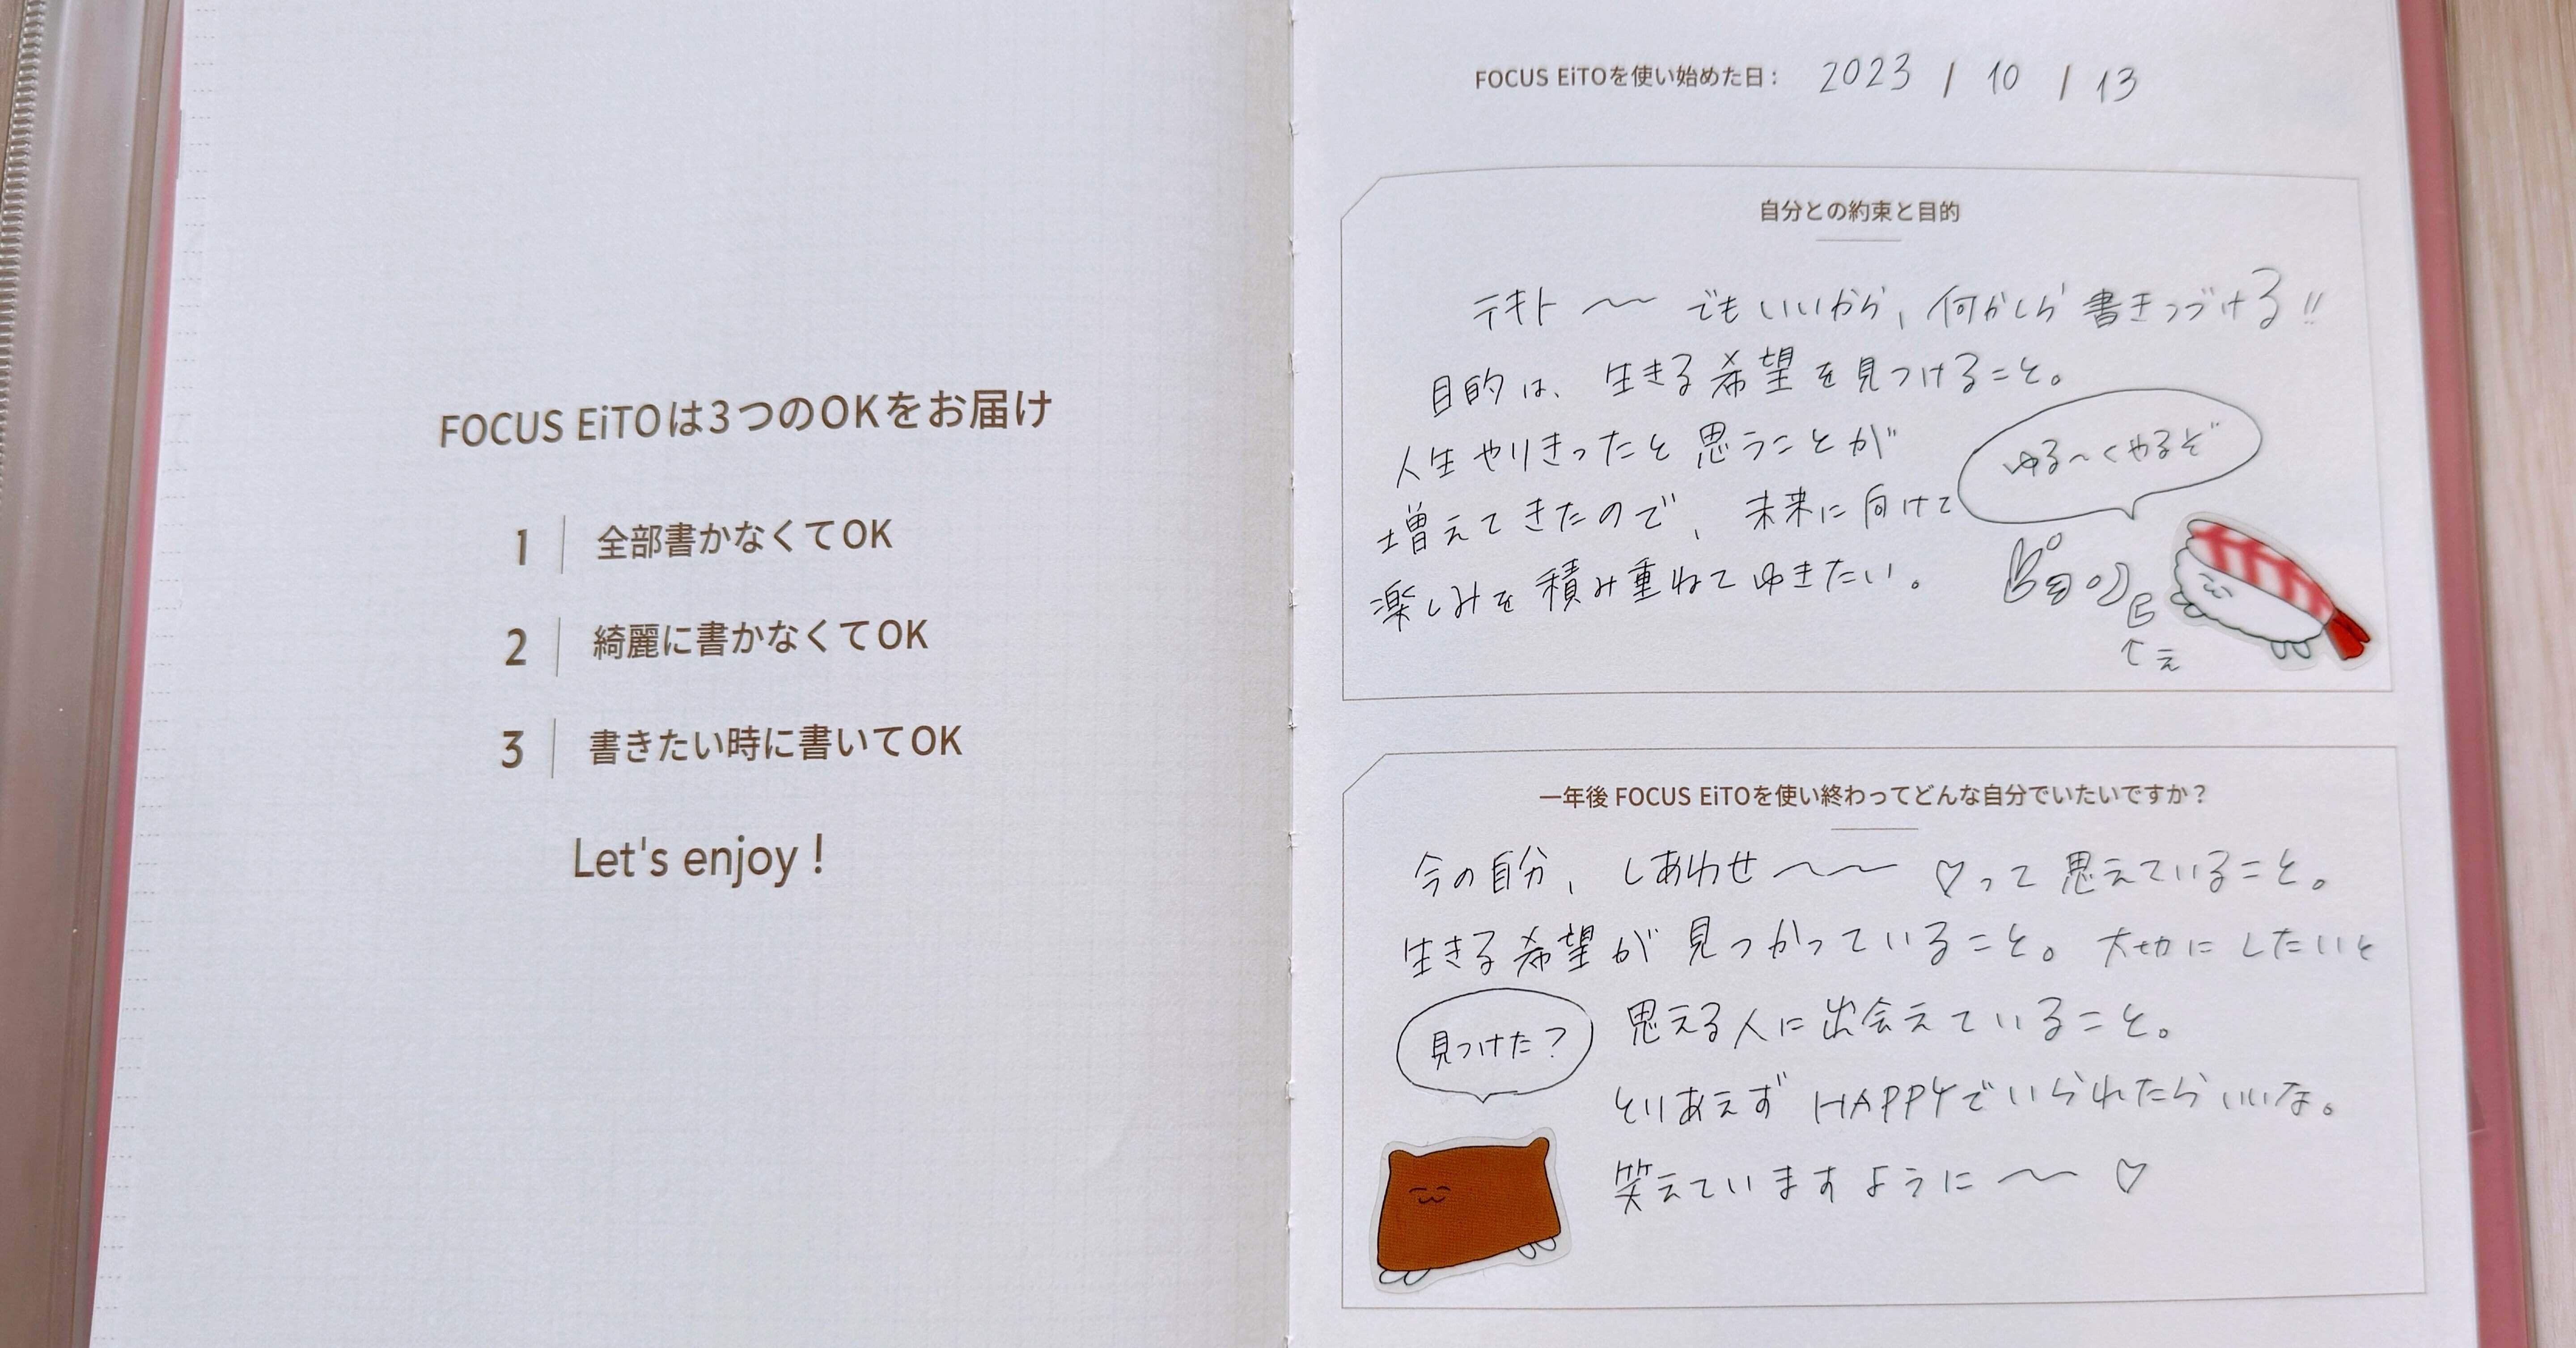 FOCUS EiTOは3つのOKをお届け
1 全部書かなくてOK
2 綺麗に書かなくてOK
3 書きたい時に書いてOK
Let's enjoy !
FOCUS EiTOを使い始めた日: 2023 / 10 / 13
自分との約束と目的
テキト〜〜でもいいから、何かしら書きつづける!!
目的は、生きる希望を見つけること。
人生やりきったと思うことが
増えてきたので、未来に向けて
楽しみを積み重ねてゆきたい。
ゆる〜くやるぞ
↑え
一年後 FOCUS EiTOを使い終わってどんな自分でいたいですか?
今の自分、しあわせ〜〜♡って思えていること。
生きる希望が見つかっていること。大切にしたいと
思える人に出会えていること。
とりあえずHAPPYでいられたらいいな。
笑えていますように〜〜♡
見つけた?